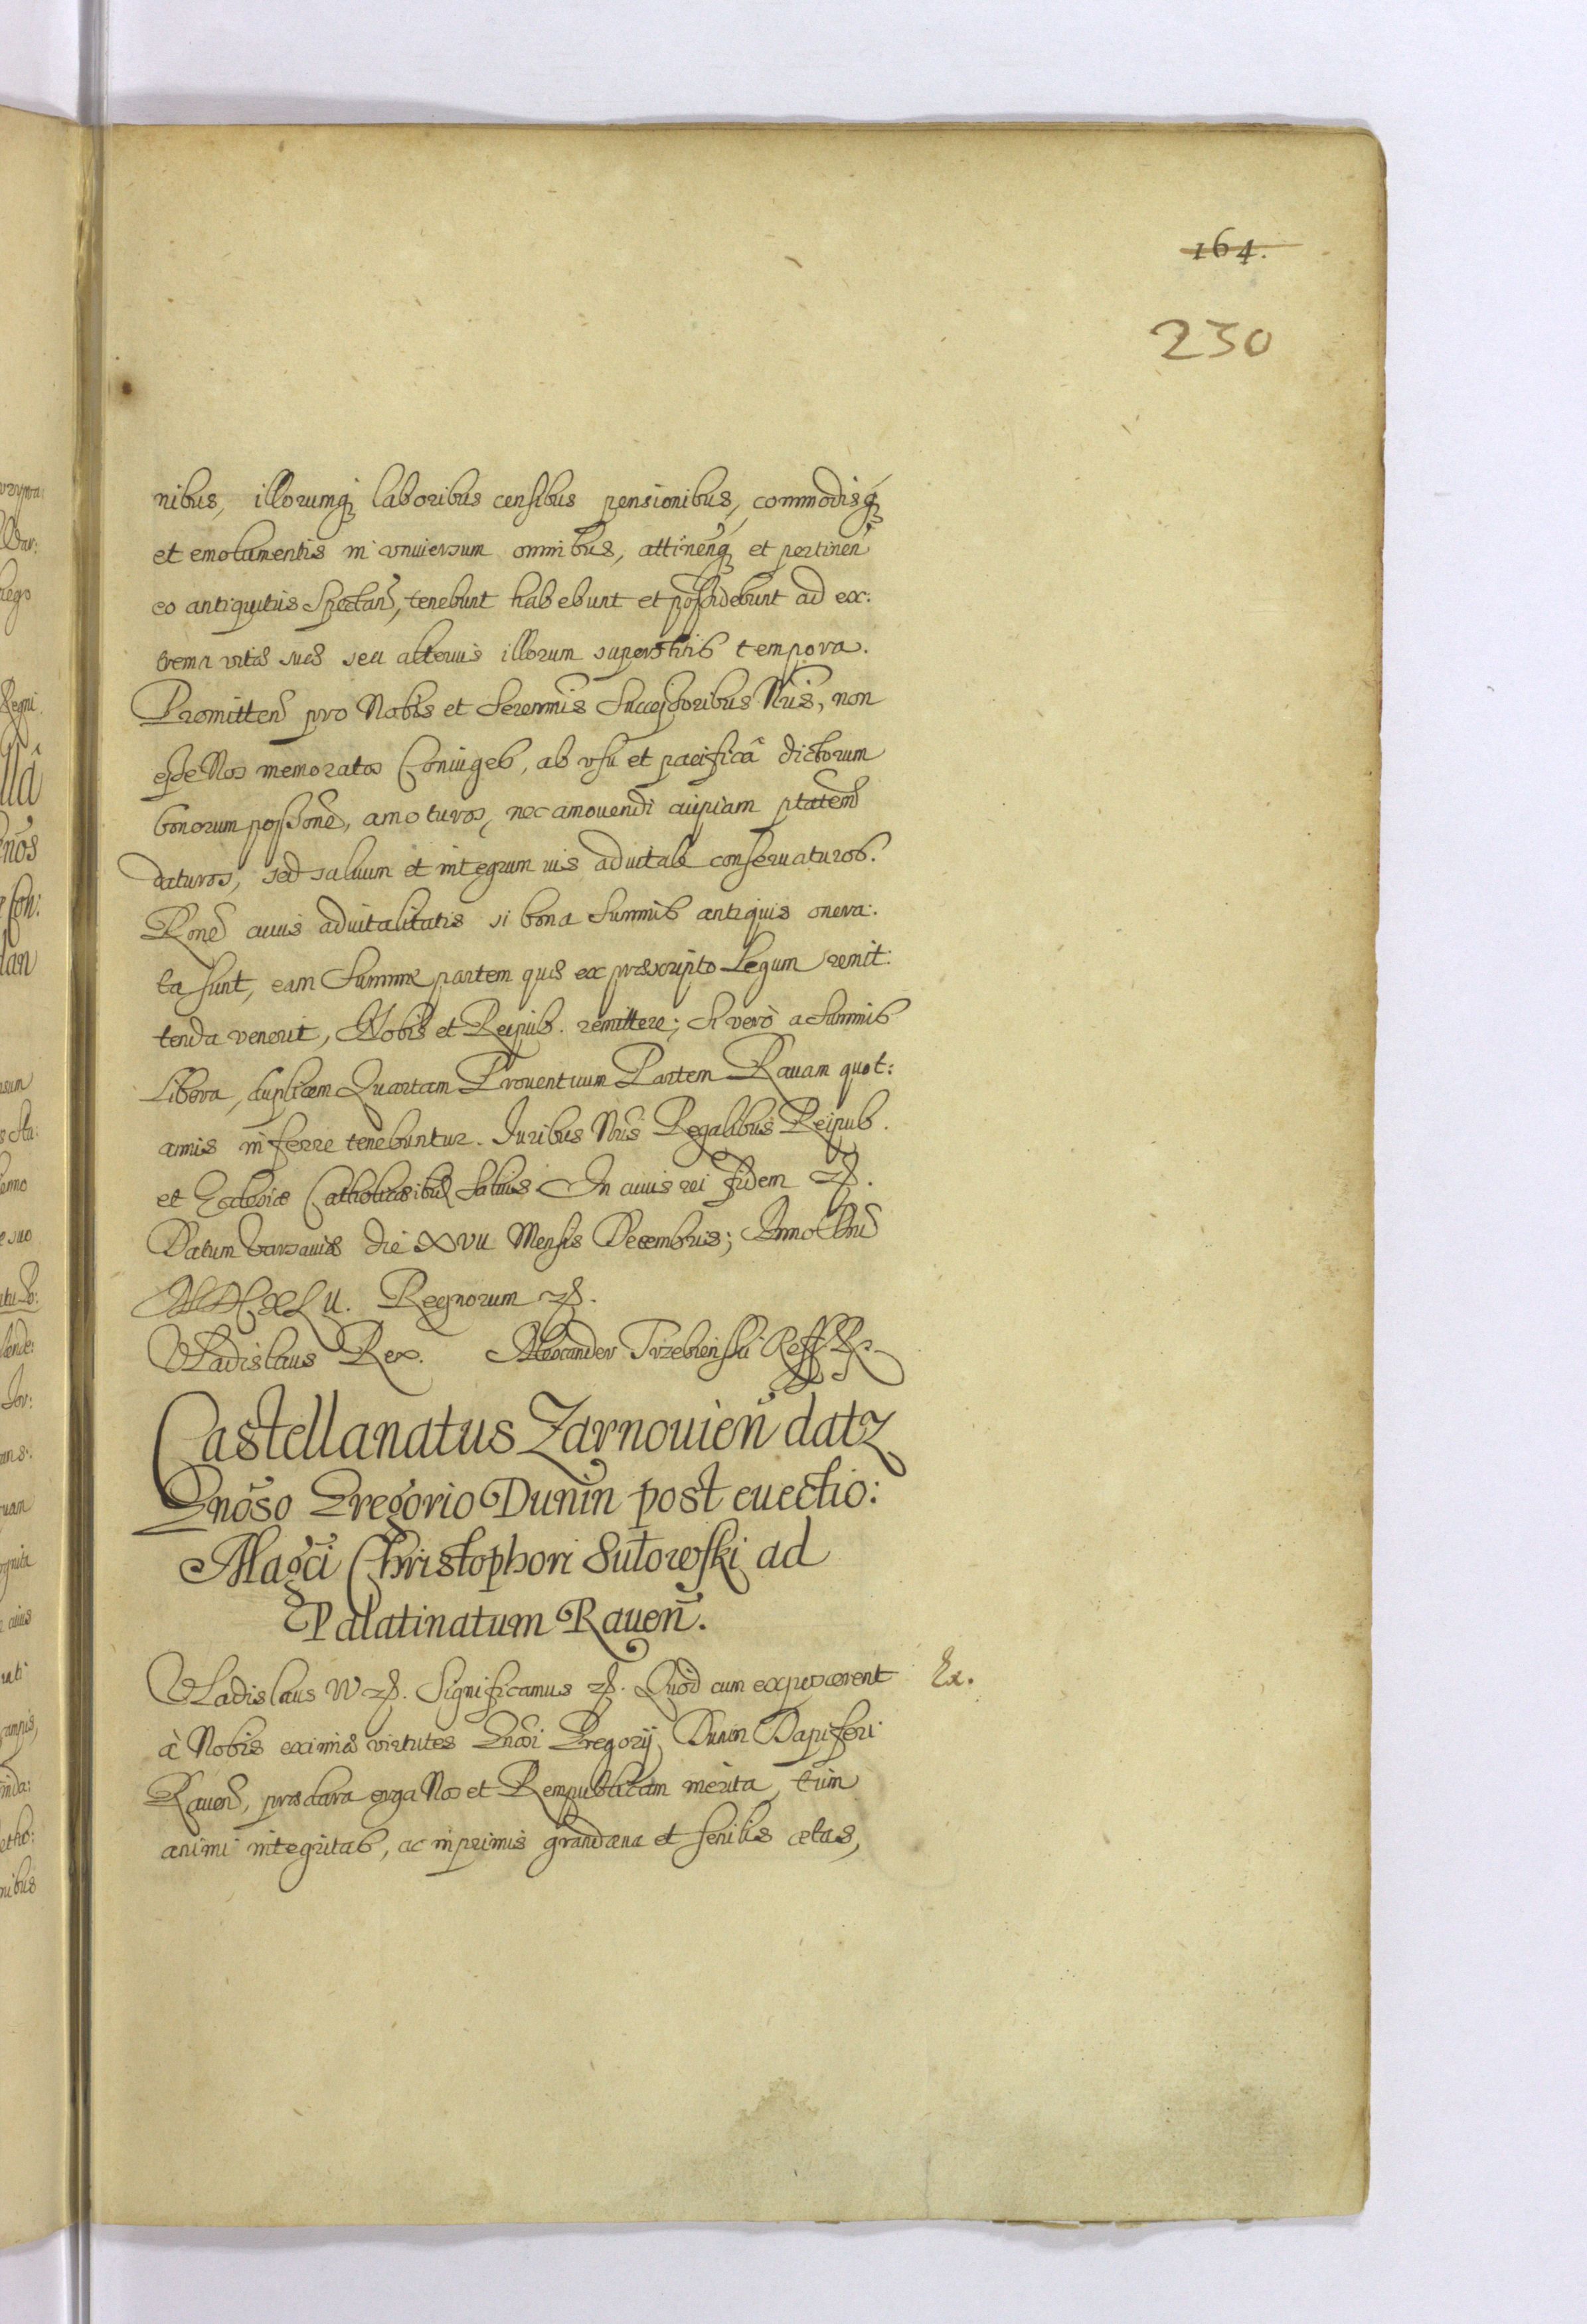 164.
230
nibus, illorumq3 laboribus censibus pensionibus, commodisq3
et emolumentis in vniuersum omnibus, attinenq3 et pertinen̄
eo antiquitus spectan̄, tenebunt habebunt et possidebunt ad ex:
trema vitæ suæ seu alterius illorum superstitis tempora.
Promitten̄ pro Nobis et Serenmis Successoribus Nris, non
esse Nos memoratos Coniuges, ab vsu et pacificâ dictorum
bonorum possone, amoturos, nec amouendi cuipiam ptatem
daturos, sed saluum et integrum ius aduitale conseruaturos.
Rone cuius aduitalitatis si bona Summis antiquis onera:
ta sunt, eam Summæ partem quæ ex præscripto Legum remit:
tenda venerit, Nobis et Reipub. remittere; Si verò a Summis
Libera, duplicem Quartam Prouentuum Partem Rauam quot:
annis inferre tenebuntur. Iuribus Nris Regalibus Reipub.
et Ecclesiæ Catholicæ saluis. In cuius rei fidem etc.
Datum Varsauiæ die XVII Mensis Decembris; Anno Dni
MDCXLII. Regnorum etc.
Vladislaus Rex. Alexander Trzebienski Reff. R.
Castellanatus Zarnouien̄ datz
Gnoso Gregorio Dunin post euectio:
Magci Christophori Sulowski ad
Palatinatum Rauen̄.
Vladislaus IV etc. Significamus etc. Quòd cum exposcerent
Ex.
à Nobis eximiæ virtutes Gnosi Gregorij Dunin Dapiferi
Rauen̄, præclara erga Nos et Rempublicam merita, tùm
animi integritas, ac inprimis grandæua et senilis ætas,